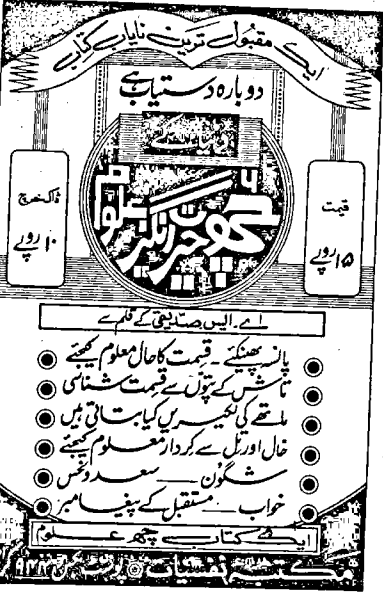 ایک مقبول ترین نایاب کتاب
دوبارہ دستیاب ہے
دنیا کے
۶ حیرت انگیز علوم
قیمت
۱۵ روپے
ڈاک خرچ
۱۰ روپے
اے۔ ایس صدیقی کے قلم سے
پانسہ پھینکئے۔ قسمت کا حال معلوم کیجئے
تاش کے پتوں سے قسمت شناسی
ماتھے کی لکیریں کیا بتاتی ہیں
خال اور تل سے کردار معلوم کیجئے
شگون ـــ سعد و نحس
خواب ـــ مستقبل کے پیغامبر
ایک کتاب چھ علوم
مکتبہ نفسیات پوسٹ بکس